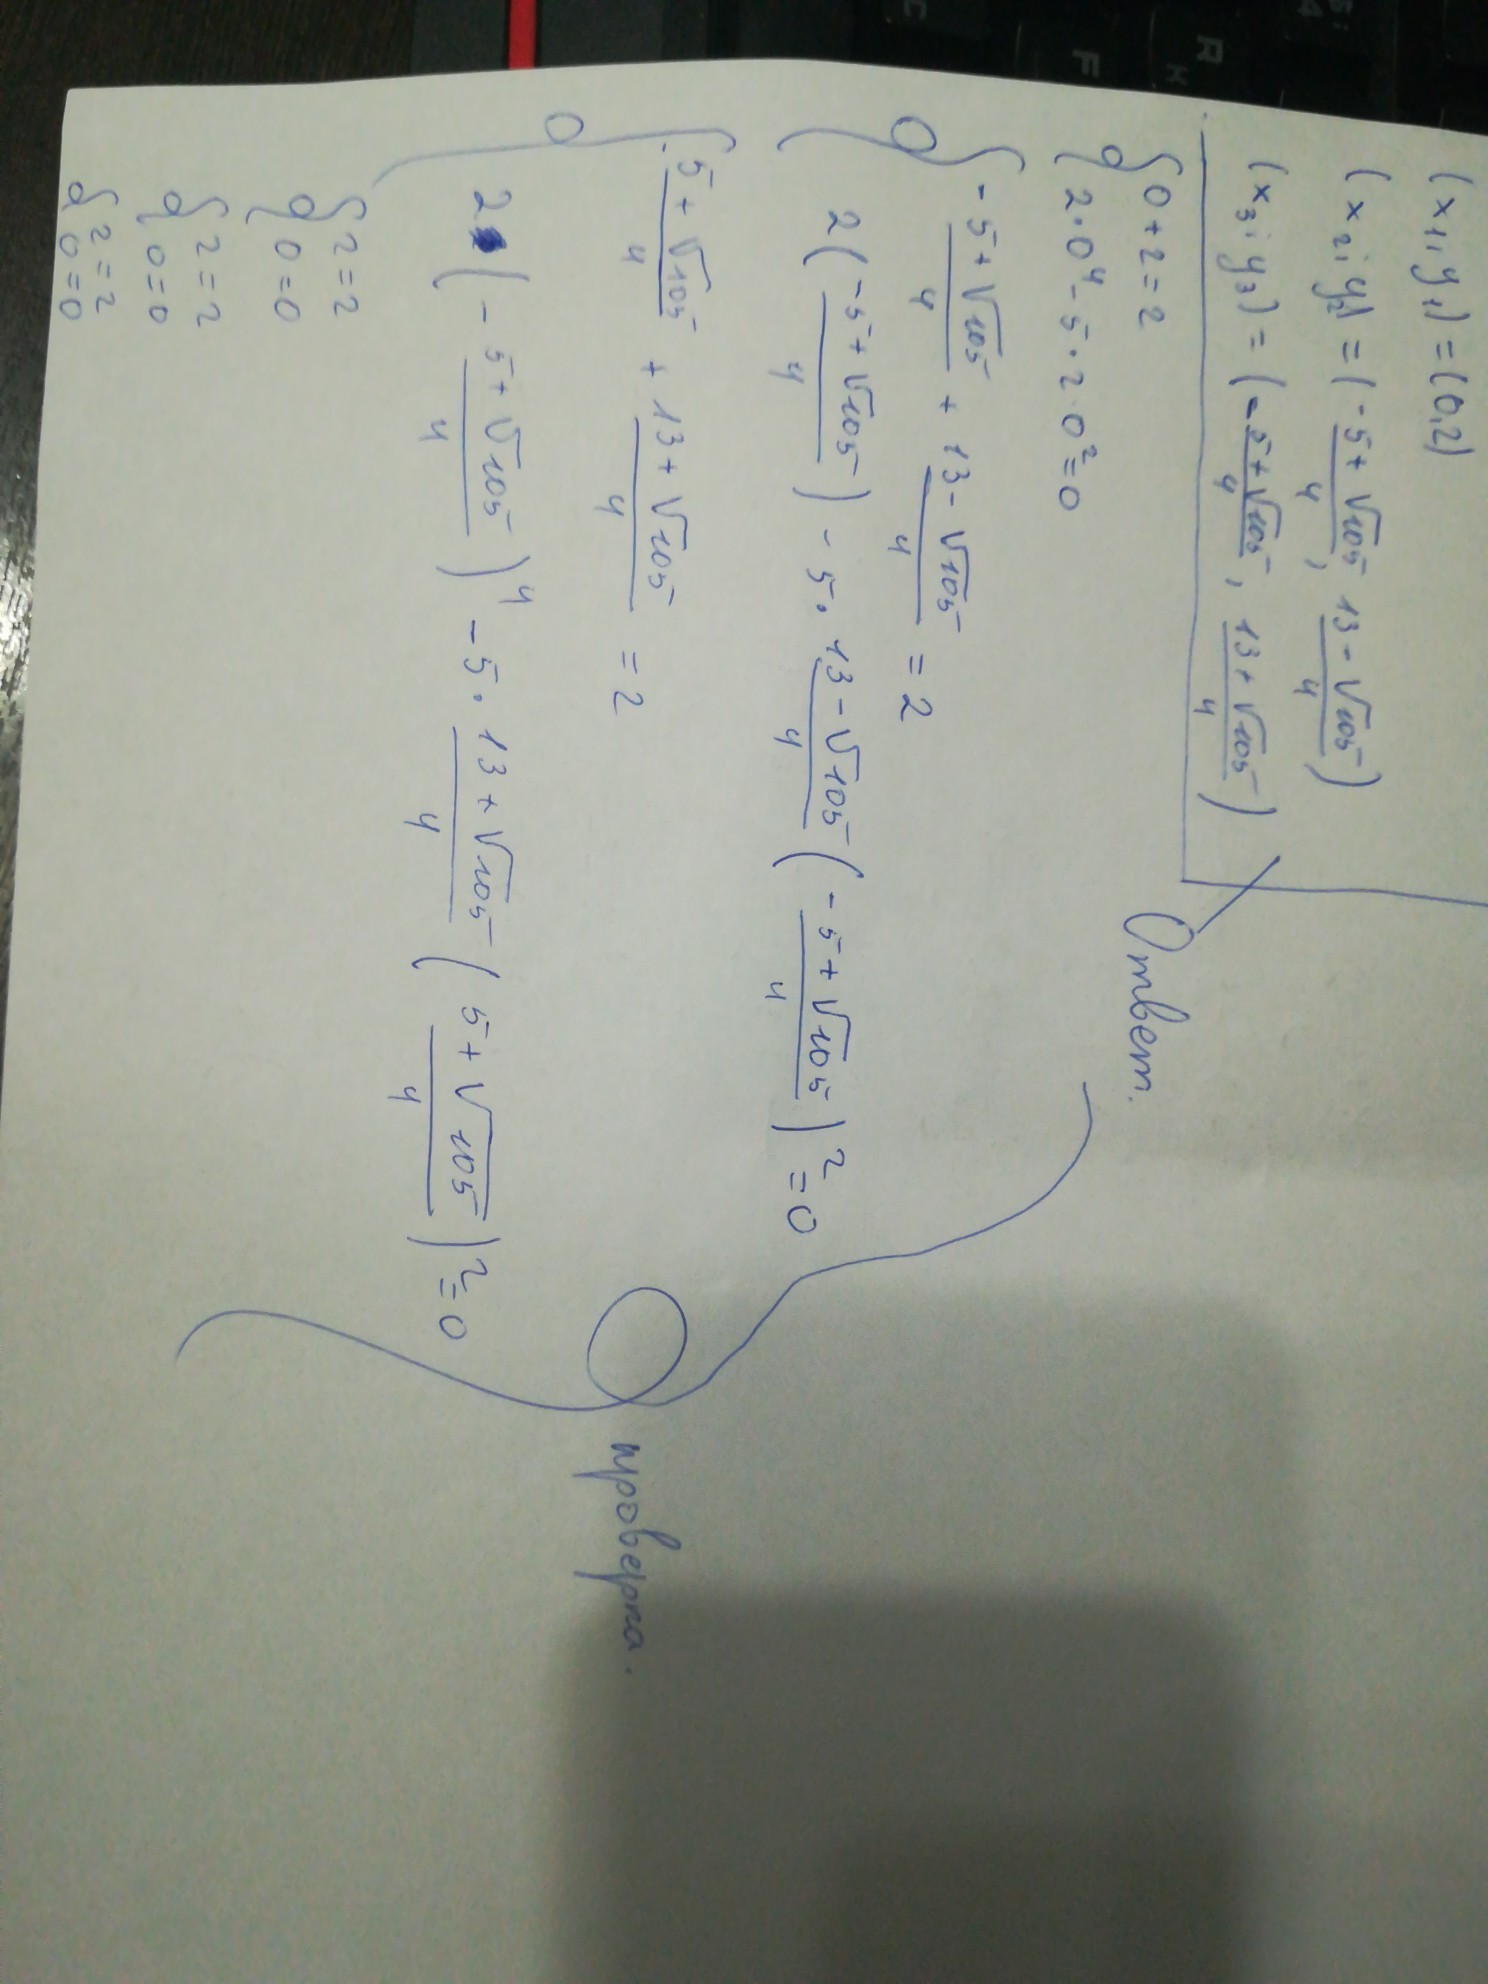 (x₁, y₁) = (0, 2)
(x₂; y₂) = (-5+√105/4, 13-√105/4)
(x₃; y₃) = (-5+√105/4, 13+√105/4)
Ответ.
{0+2=2
2·0⁴-5·2·0²=0
{-5+√105/4 + 13-√105/4 = 2
2(-5+√105/4) - 5·13-√105/4(-5+√105/4)²=0
{5+√105/4 + 13+√105/4 = 2
2(-5+√105/4)⁴ - 5·13+√105/4(5+√105/4)²=0
проверка.
{2=2
0=0
{2=2
0=0
{2=2
0=0
R
F
C
4
5